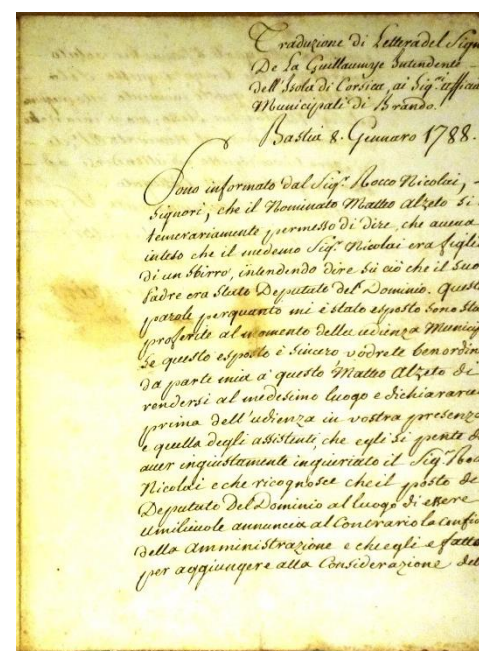 Traduzione di Lettera del Sign
De La Guillaumye Intendente
dell'Isola di Corsica, ai Sig.ri uffician
Municipali di Brando.
Bastia 8. Gennaro 1788.
Sono informato dal Sig.r Rocco Nicolai, -
Signori, che il Nominato Matteo Alzeto si
temerariamente permesso di dire, che aueua
inteso che il medemo Sig.r Nicolai era figli
di un Sbirro, intendendo dire su ciò che il suo
Padre era Stato Deputato del Dominio. Quest
parole per quanto mi è stato esposto sono sta
proferite al momento della udienza Municip
Se questo esposto è Sincero vodrete ben ordin
da parte mia a questo Matteo Alzeto di
rendersi al medesimo luogo e dichiarare
prima dell'udienza in vostra presenza
e quella degli assistenti, che egli si pente d
auer ingiustamente ingiuriato il Sig.r Roc
Nicolai e che ricognosce che il posto de
Deputato Del Dominio al luogo di essere
umilieuole annuncia al Contrario la Confid
della amministrazione e che egli e fatto
per aggiungere alla Considerazione del